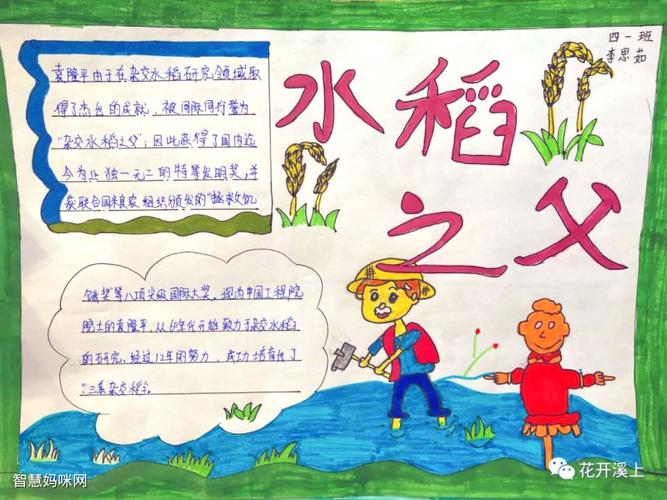 四一班
李思茹
水稻
之父
袁隆平由于在杂交水稻研究领域取
得了杰出的成就，被国际同行誉为
"杂交水稻之父"；因此获得了国内迄
今为止独一元二的特等发明奖，并
获联合国粮农组织颁发的"拯救饥
饿奖等八项尖级国际大奖。现为中国工程院
院士的袁隆平，从60年代开始致力于杂交水稻
的研究，经过12年的努力，成功培育出了
"三系杂交稻。
智慧妈咪网
花开溪上